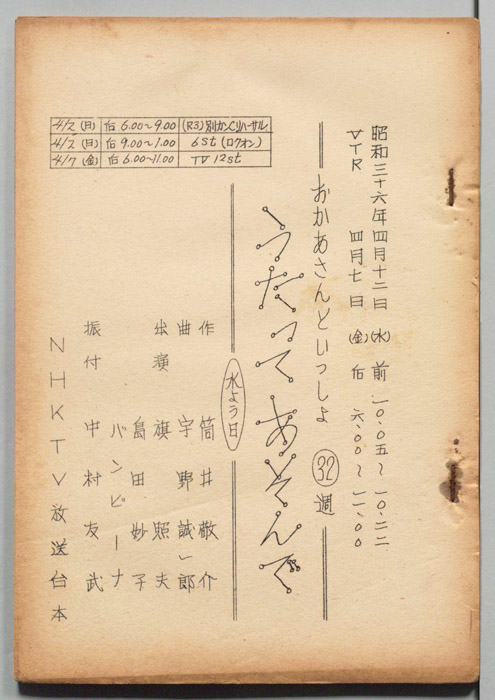 昭和三十六年四月十二日(水)前一〇.〇五〜一〇.二二
VTR 四月七日(金)后六.〇〇〜一一.〇〇
おかあさんといっしょ 32週
うたって あそんで
水よう日
作 筒井敬介
曲 宇野誠一郎
出演 旗照夫
島田妙子
バンピーナ
振付 中村友武
NHKTV放送台本
4/2(日) 后 6.00〜9.00 (R3)別カンCリハーサル
4/2(日) 后 9.00〜1.00 6st(ロクオン)
4/7(金) 后 6.00〜11.00 TV 12st